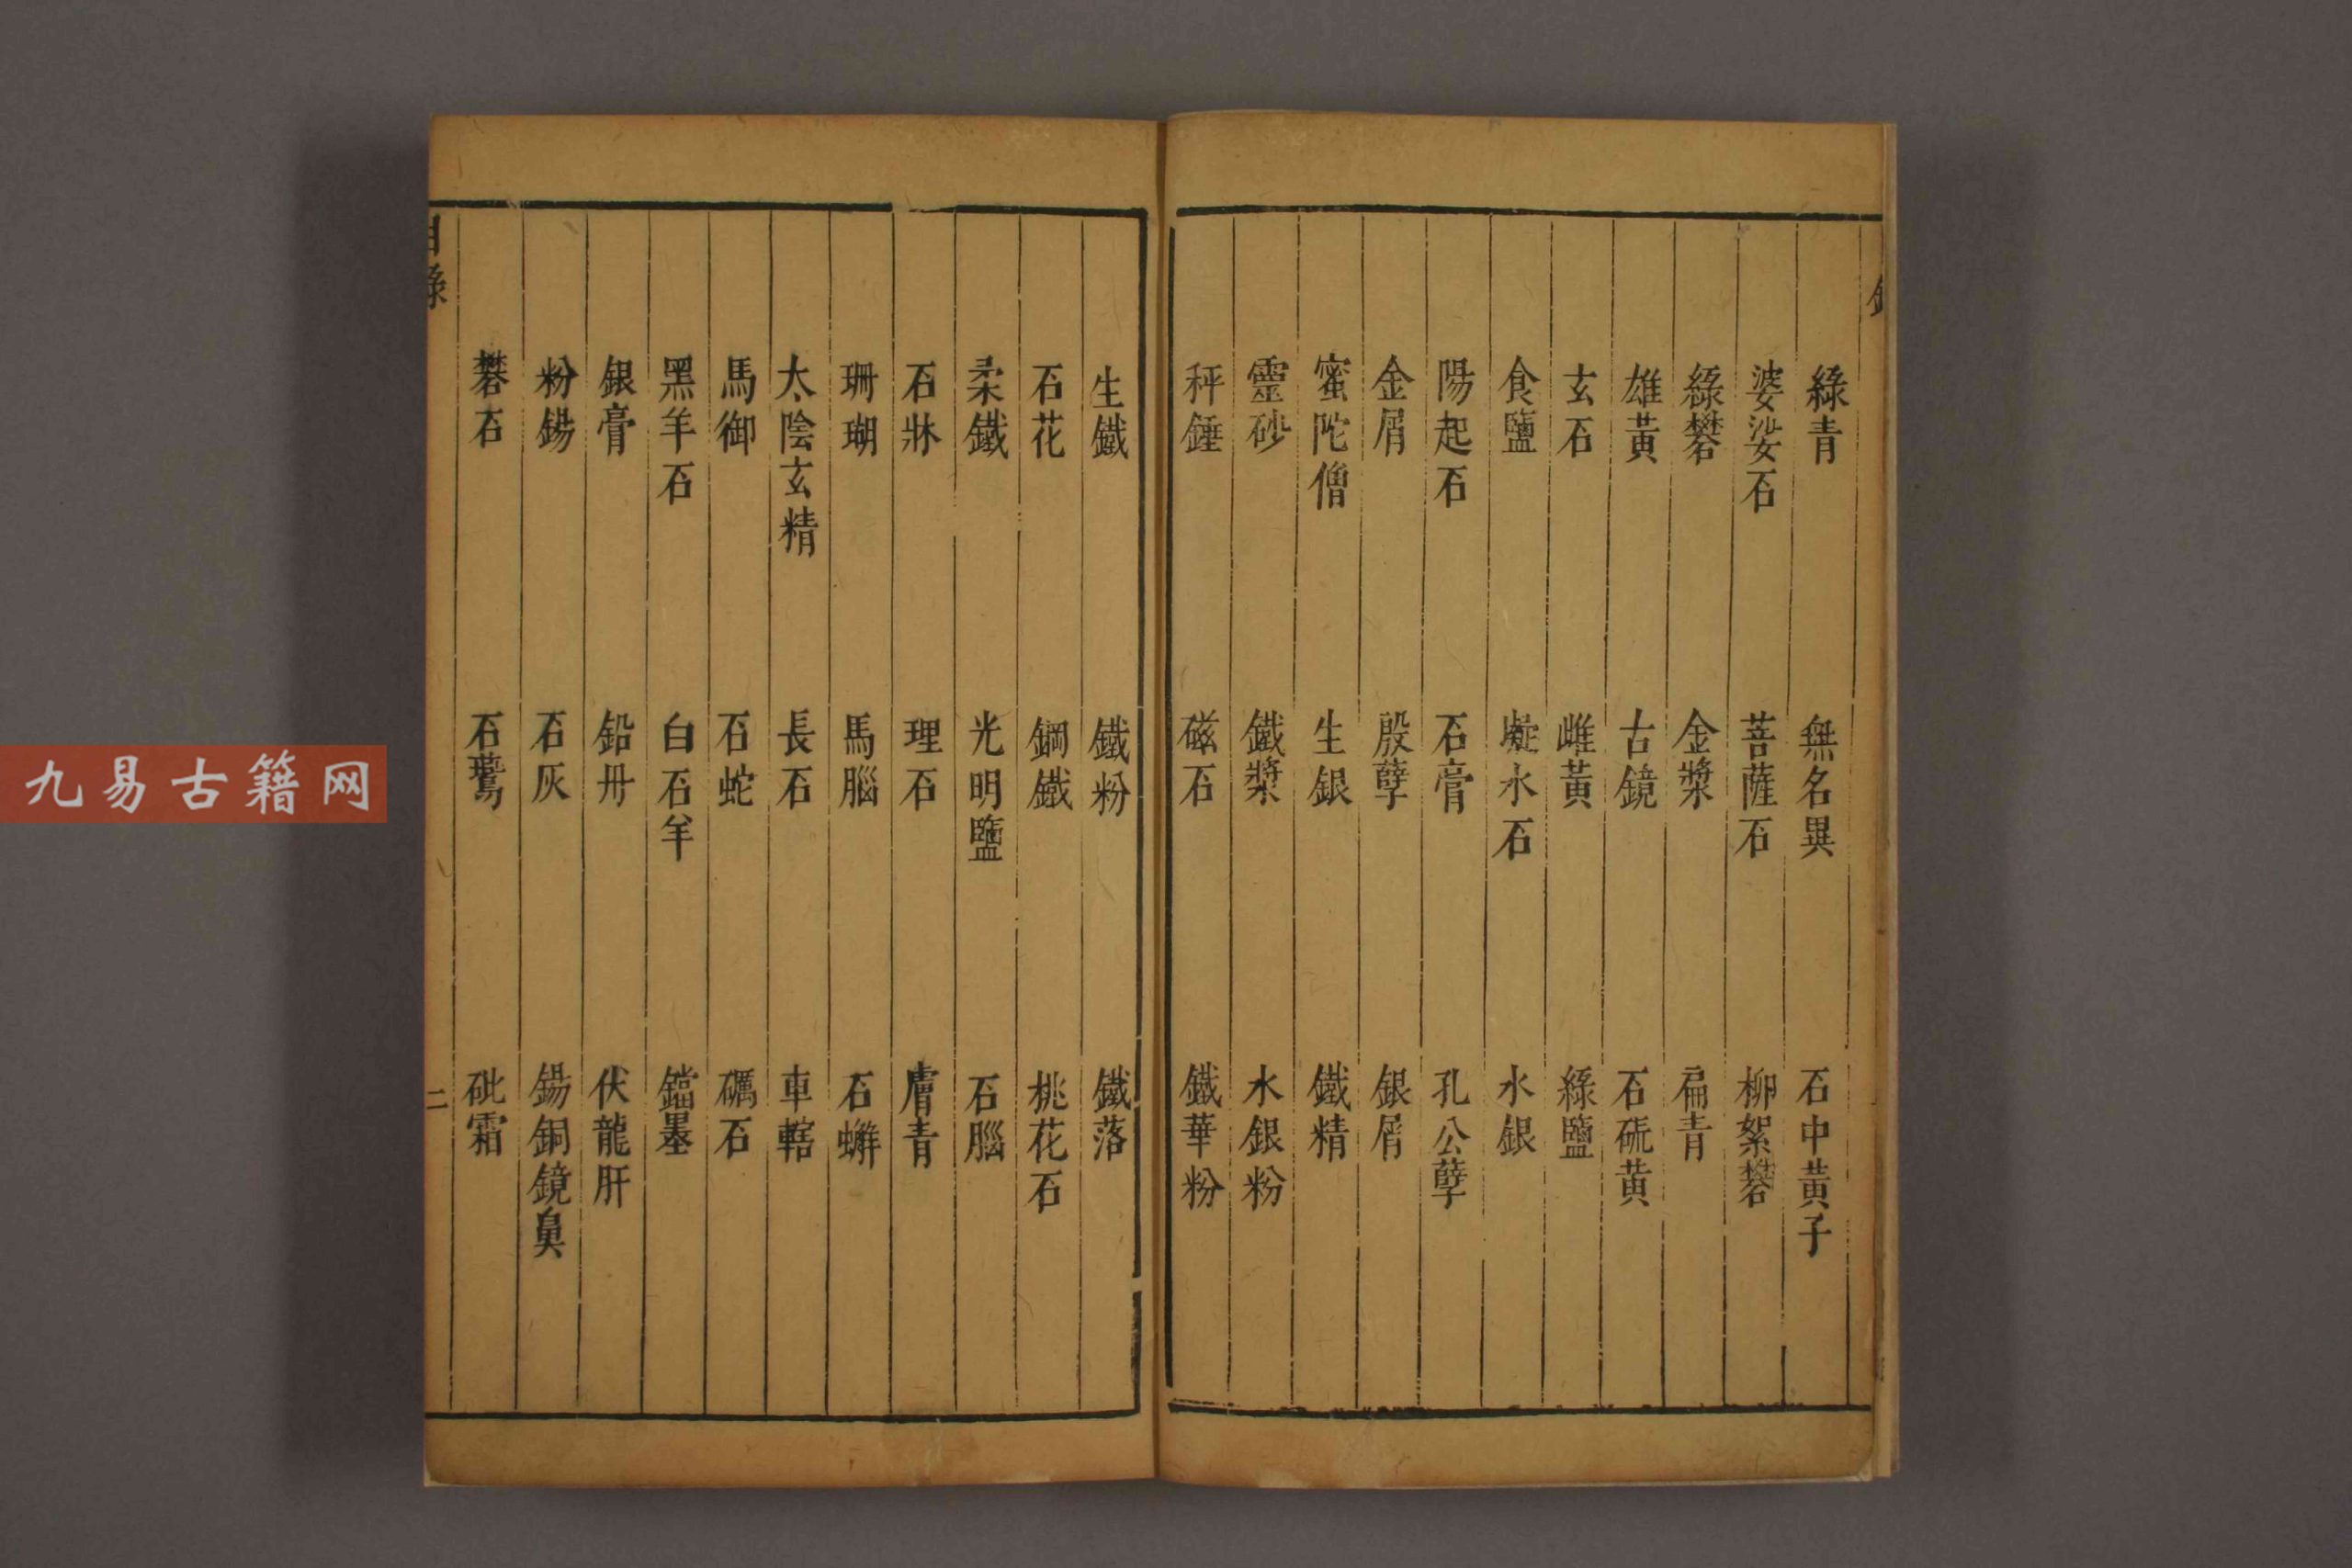 綠青 無名異 石中黃子
婆娑石 菩薩石 柳絮礬
綠礬 金漿 扁青
雄黃 古鏡 石硫黃
玄石 雌黃 綠鹽
食鹽 凝水石 水銀
陽起石 石膏 孔公孽
金屑 殷孽 銀屑
蜜陀僧 生銀 鐵精
靈砂 鐵漿 水銀粉
秤錘 磁石 鐵華粉
生鐵 鐵粉 鐵落
石花 鋼鐵 桃花石
柔鐵 光明鹽 石腦
石牀 理石 膚青
珊瑚 馬腦 石蠏
太陰玄精 長石 車轄
馬御 石蛇 礪石
黑羊石 白石羊 鐺墨
銀膏 鉛丹 伏龍肝
粉錫 石灰 錫銅鏡鼻
礬石 石鷰 砒霜
目錄 二
九易古籍网